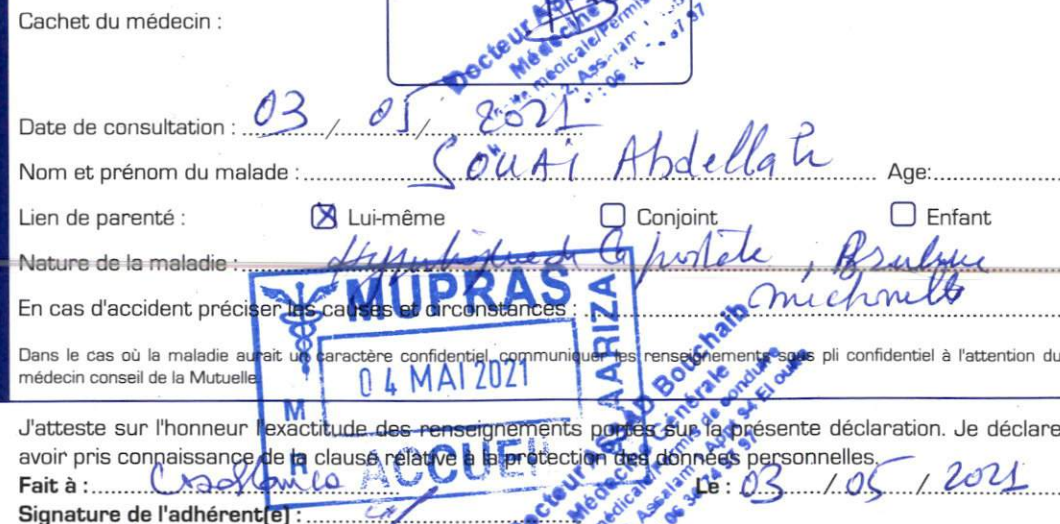 Cachet du médecin :
Docteur
Médecine
Date de consultation : 03 / 05 / 2021
Nom et prénom du malade : SOUAI Abdellah Age:
Lien de parenté : ☒ Lui-même ☐ Conjoint ☐ Enfant
Nature de la maladie : de la , Brulure
mictionnelle
En cas d'accident préciser les causes et circonstances :
MUPRAS
Dans le cas où la maladie aurait un caractère confidentiel, communiquer les renseignements sous pli confidentiel à l'attention du
médecin conseil de la Mutuelle.
04 MAI 2021
ACCUEIL
Bouchaib
Générale
J'atteste sur l'honneur l'exactitude des renseignements portés sur la présente déclaration. Je déclare
avoir pris connaissance de la clause relative à la protection des données personnelles.
Fait à : Casablanca Le : 03 / 05 / 2021
Signature de l'adhérent(e) :